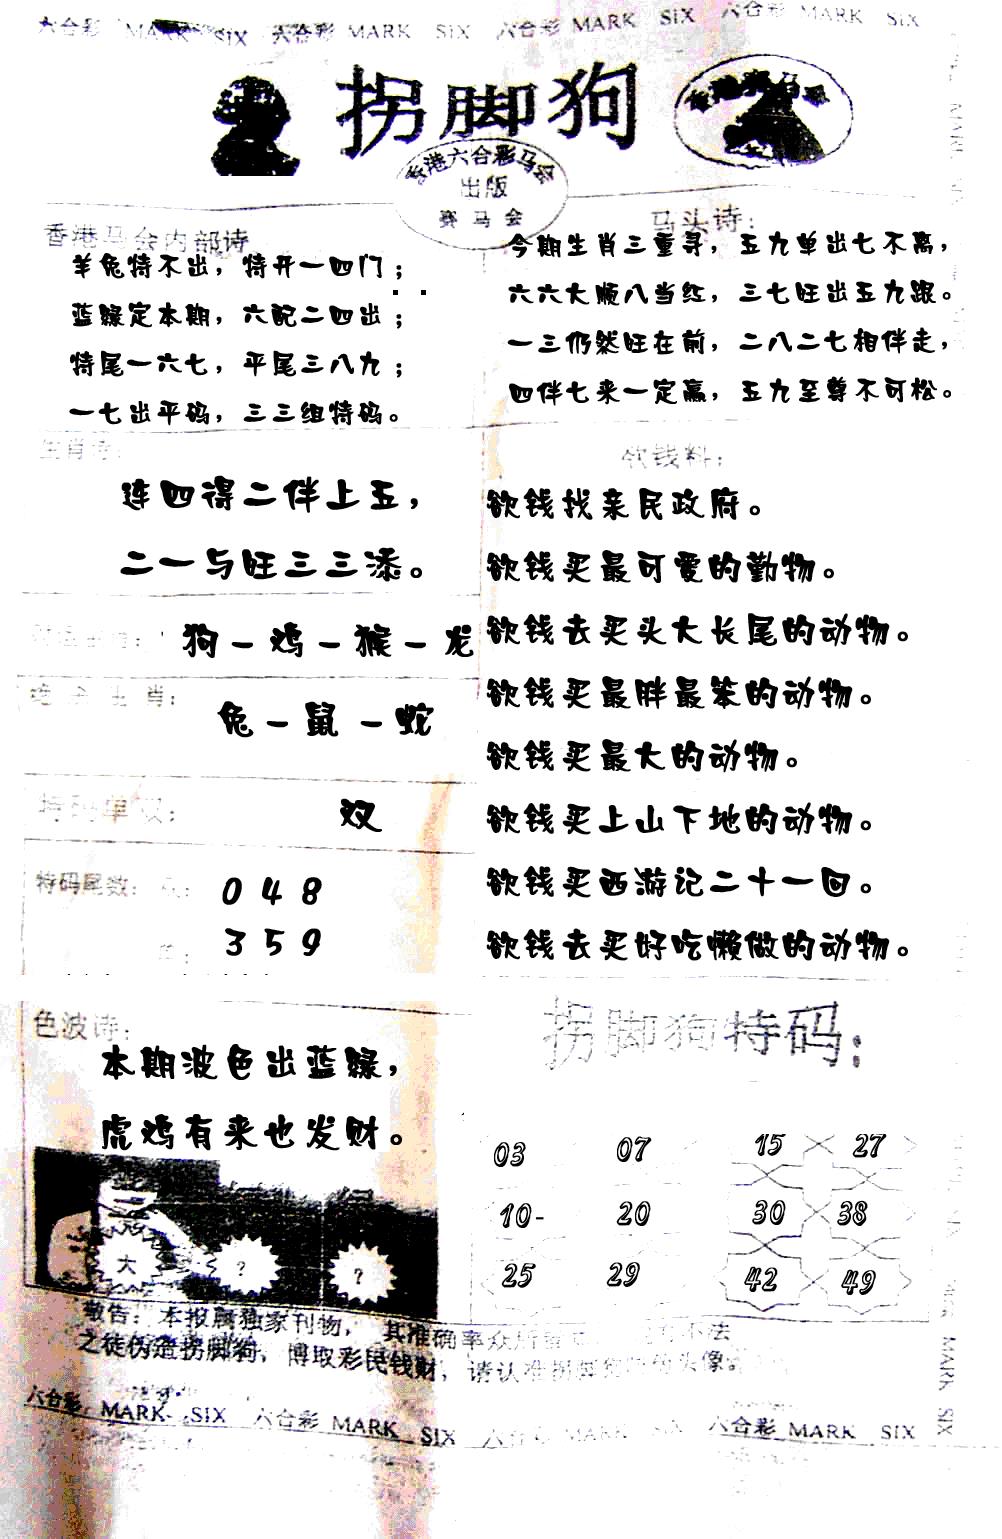 六合彩 MARK SIX 六合彩 MARK SIX 六合彩 MARK SIX 六合彩 MARK SIX
拐脚狗
香港六合彩马会
出版
赛马会
香港马会内部诗
羊兔特不出，特开一四门；
蓝绿定本期，六配二四出；
特尾一六七，平尾三八九；
一七出平码，三三组特码。
马头诗：
今期生肖三重寻，五九单出七不离，
六六大顺八当红，三七旺出五九跟。
一三仍然旺在前，二八二七相伴走，
四伴七来一定赢，五九至尊不可松。
生肖诗：
连四得二伴上五，
二一与旺三三添。
狗－鸡－猴－龙
绝杀生肖：
兔－鼠－蛇
特码单双：
双
特码尾数：
0 4 8
3 5 9
欲钱料：
欲钱找亲民政府。
欲钱买最可爱的動物。
欲钱去买头大长尾的动物。
欲钱买最胖最笨的动物。
欲钱买最大的动物。
欲钱买上山下地的动物。
欲钱买西游记二十一回。
欲钱去买好吃懒做的动物。
色波诗：
本期波色出蓝绿，
虎鸡有来也发财。
大 ? ?
拐脚狗特码：
03 07 15 27
10- 20 30 38
25 29 42 49
敬告：本报属独家刊物，其准确率众所
不法
之徒伪造拐脚狗，博取彩民钱财，请认准拐脚狗
头像
六合彩 MARK SIX 六合彩 MARK SIX 六合彩 MARK SIX 六合彩 MARK SIX
MARK SIX